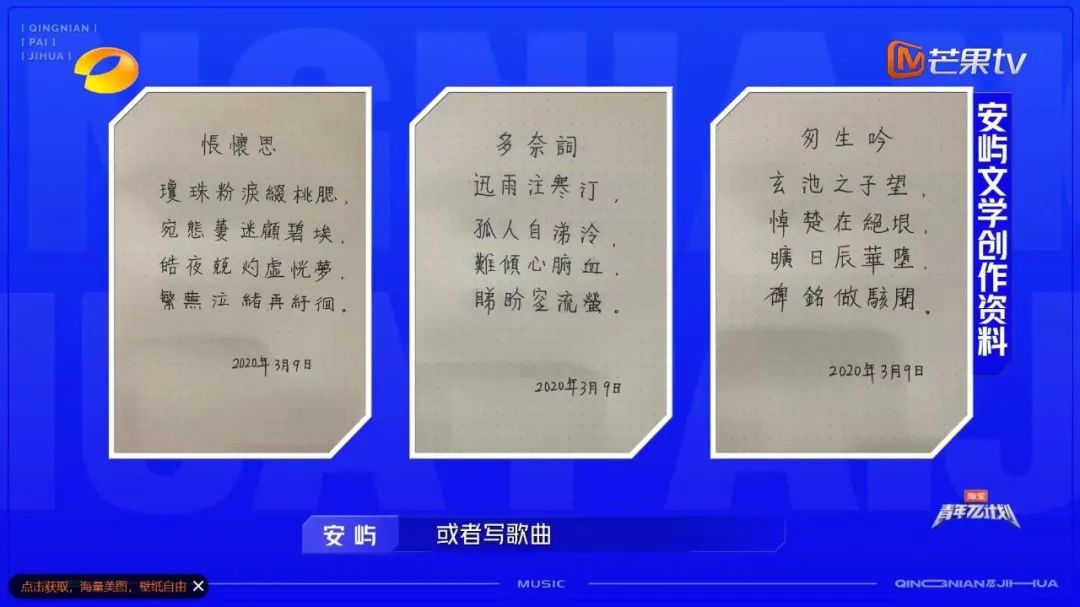 [ QINGNIAN ]
[ PAI ]
[ JIHUA ]
芒果tv
悵懷思
瓊珠粉淚綴桃腮，
宛態萋迷顧碧埃，
皓夜兢灼虛恍夢，
繁蕪泣緒再紆徊。
2020年3月9日
多奈詞
迅雨注寒汀，
孤人自涕泠，
難傾心腑血，
睇盼空流螢。
2020年3月9日
匆生吟
玄池之子望，
悼楚在絕垠，
曠日辰華墮，
碑銘做駭聞。
2020年3月9日
安屿文学创作资料
安屿 或者写歌曲
淘宝
青年π计划
点击获取，海量美图，壁纸自由 ✕
MUSIC
QINGNIAN π JIHUA